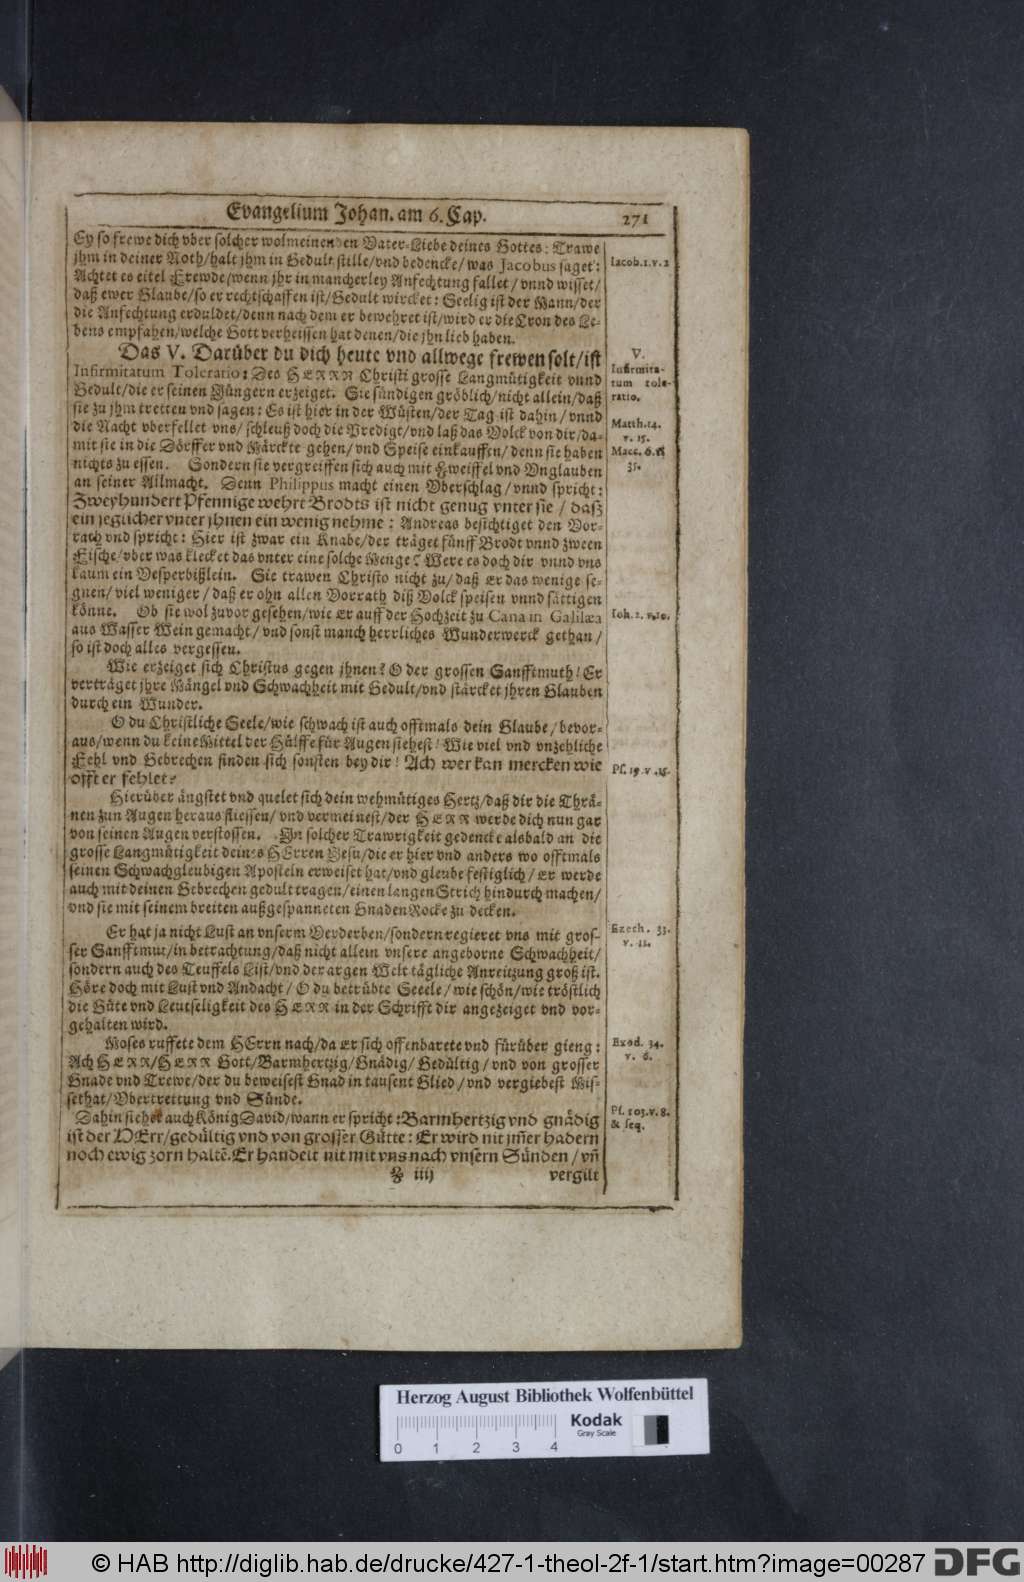 Evangelium Johan. am 6. Cap. 271
Ey so frewe dich vber solcher wolmeinenden Vater-Liebe deines Gottes: Trawe
jhm in deiner Noth/halt jhm in Gedult stille/vnd bedencke/was Jacobus saget:
Iacob.1.v.2
Achtet es eitel Frewde/wenn jhr in mancherley Anfechtung fallet/vnnd wisset/
daß ewer Glaube/so er rechtschaffen ist/Gedult wircket: Seelig ist der Mann/der
die Anfechtung erduldet/denn nach dem er bewehret ist/wird er die Cron des Le-
bens empfahen/welche Gott verheissen hat denen/die jhn lieb haben.
Das V. Darüber du dich heute vnd allwege frewen solt/ist
V.
Infirmitatum Toleratio: Des HERRN Christi grosse Langmütigkeit vnnd
Infirmita-
tum tole-
ratio.
Gedult/die er seinen Jüngern erzeiget. Sie sündigen gröblich/nicht allein/daß
sie zu jhm tretten vnd sagen: Es ist hier in der Wüsten/der Tag ist dahin/vnnd
Matth.14.
v. 15.
die Nacht vberfellet vns/schleuß doch die Predigt/vnd laß das Volck von dir/da-
mit sie in die Dörffer vnd Märckte gehen/vnd Speise einkauffen/denn sie haben
Marc. 6.v.
35.
nichts zu essen. Sondern sie vergreiffen sich auch mit Zweiffel vnd Vnglauben
an seiner Allmacht. Denn Philippus macht einen Vberschlag/vnnd spricht:
Zweyhundert Pfennige wehrt Brodts ist nicht genug vnter sie/daß
ein jeglicher vnter jhnen ein wenig nehme: Andreas besichtiget den Vor-
rath vnd spricht: Hier ist zwar ein Knabe/der träget fünff Brodt vnnd zween
Fische/vber was klecket das vnter eine solche Menge? Were es doch dir vnnd vns
kaum ein Vesperbißlein. Sie trawen Christo nicht zu/daß Er das wenige se-
gnen/viel weniger/daß er ohn allen Vorrath diß Volck speisen vnnd sättigen
könne. Ob sie wol zuvor gesehen/wie Er auff der Hochzeit zu Cana in Galilæa
Ioh. 2. v.10.
aus Wasser Wein gemacht/vnd sonst manch herrliches Wunderwerck gethan/
so ist doch alles vergessen.
Wie erzeiget sich Christus gegen jhnen? O der grossen Sanfftmuth! Er
verträget jhre Mängel vnd Schwachheit mit Gedult/vnd stärcket jhren Glauben
durch ein Wunder.
O du Christliche Seele/wie schwach ist auch offtmals dein Glaube/bevor-
aus/wenn du keine Mittel der Hülffe für Augen siehest! Wie viel vnd vnzehliche
Fehl vnd Gebrechen finden sich sonsten bey dir! Ach wer kan mercken wie
Ps. 19. v.
offt er fehlet?
Hierüber ängstet vnd quelet sich dein wehmütiges Hertz/daß dir die Thrä-
nen zun Augen heraus fliessen/vnd vermeinest/der HERR werde dich nun gar
von seinen Augen verstossen. In solcher Trawrigkeit gedencke alsbald an die
grosse Langmütigkeit deines HErren Jesu/die er hier vnd anders wo offtmals
seinen Schwachgleubigen Aposteln erweiset hat/vnd gleube festiglich/Er werde
auch mit deinen Gebrechen gedult tragen/einen langen Strich hindurch machen/
vnd sie mit seinem breiten außgespanneten Gnaden Rocke zu decken.
Er hat ja nicht Lust an vnserm Verderben/sondern regieret vns mit gros-
Ezech. 33.
v. 11.
ser Sanfftmut/in betrachtung/daß nicht allein vnsere angeborne Schwachheit/
sondern auch des Teuffels List/vnd der argen Welt tägliche Anreitzung groß ist.
Höre doch mit Lust vnd Andacht/O du betrübte Seele/wie schön/wie tröstlich
die Güte vnd Leutseligkeit des HERRN in der Schrifft dir angezeiget vnd vor-
gehalten wird.
Moses ruffete dem HErrn nach/da Er sich offenbarete vnd fürüber gieng:
Exod. 34.
v. 6.
Ach HERR/HERR Gott/Barmhertzig/Gnädig/Gedültig/vnd von grosser
Gnade vnd Trewe/der du beweisest Gnad in tausent Glied/vnd vergiebest Mis-
sethat/Vbertrettung vnd Sünde.
Dahin siehet auch König David/wann er spricht: Barmhertzig vnd gnädig
Ps. 103.v.8.
& seq.
ist der HErr/gedültig vnd von grosser Gütte: Er wird nit jm̃er hadern
noch ewig zorn haltē. Er handelt nit mit vns nach vnsern Sünden/vñ
iiij vergilt
Herzog August Bibliothek Wolfenbüttel
0 1 2 3 4
Kodak
Gray Scale
© HAB http://diglib.hab.de/drucke/427-1-theol-2f-1/start.htm?image=00287 DFG